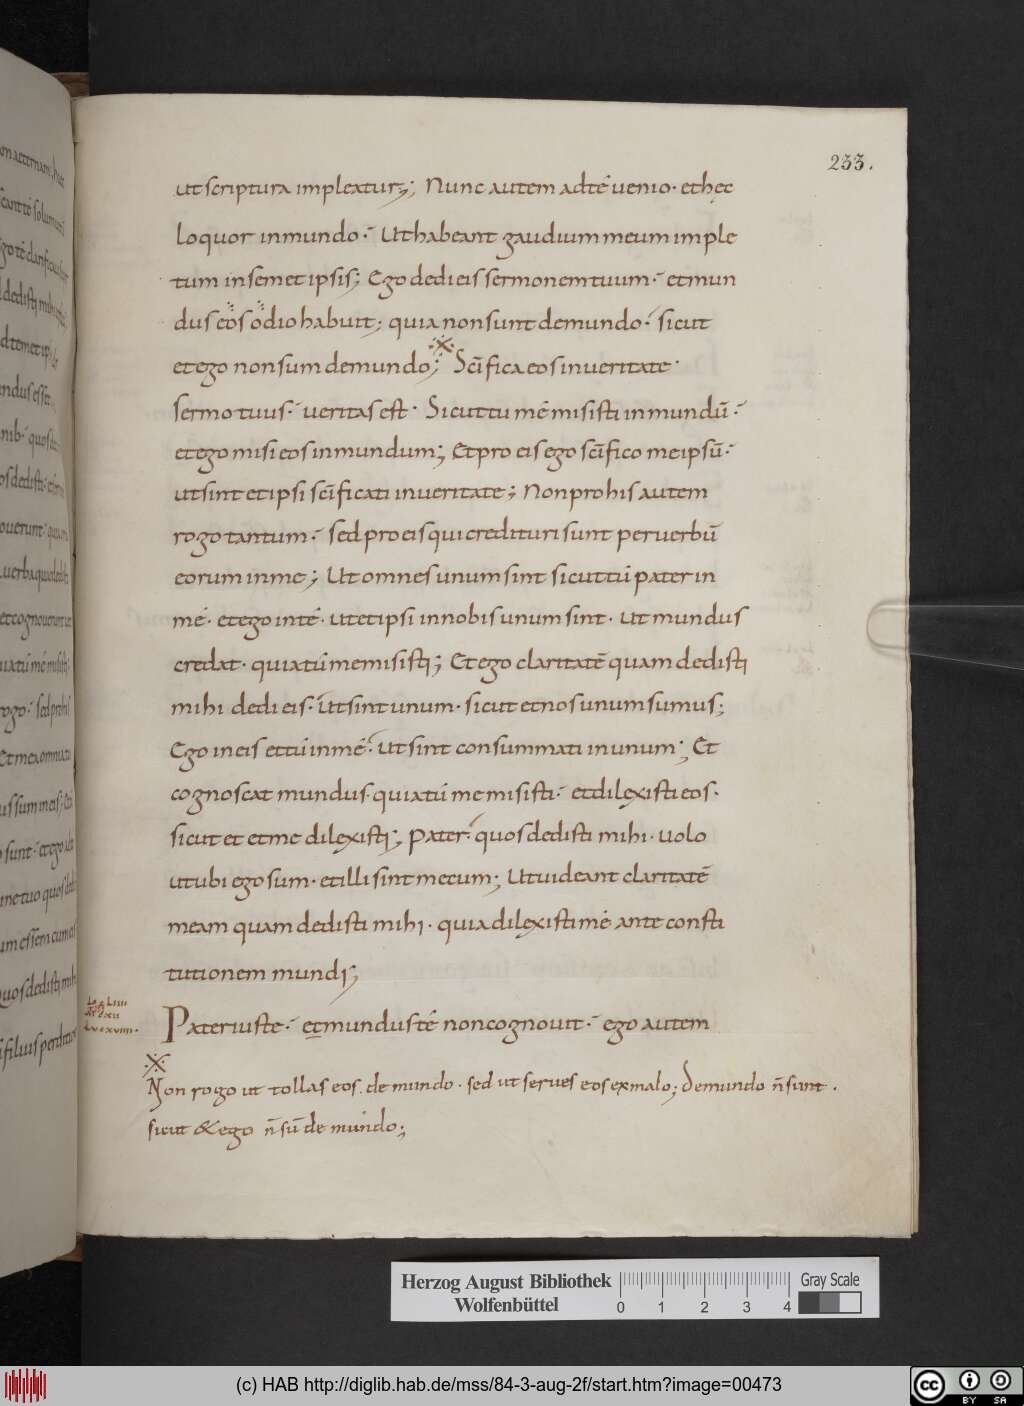 233.
ut scriptura impleatur; Nunc autem ad té uenio· et hęc
loquor in mundo· Ut habeant gaudium meum imple
tum in semet ipsis; Ego dedi eis sermonem tuum· et mun
dus eos odio habuit; quia non sunt de mundo· sicut
et ego non sum de mundo; Scīfica eos in ueritate·
sermo tuus· ueritas est· Sicut tu mé misisti in mundū·
et ego misi eos in mundum; Et pro eis ego scīfico me ipsū·
ut sint et ipsi scīficati in ueritate; Non pro his autem
rogo tantum· sed pro eis qui credituri sunt per uerbū
eorum in me; Ut omnes unum sint sicut tú pater in
mé· et ego in té· ut et ipsi in nobis unum sint· Ut mundus
credat· quia tú me misisti; Et ego claritatē quam dedisti
mihi dedi eis· Ut sint unum· sicut et nos unum sumus;
Ego in eis et tú in mé· ut sint consummati in unum; Et
cognoscat mundus· quia tú me misisti· et dilexisti eos·
sicut et et me dilexisti; Pater· quos dedisti mihi· uolo
ut ubi ego sum· et illi sint mecum; Ut uideant claritatē
meam quam dedisti mihi· quia dilexisti mé ante consti
tutionem mundi;
Pater iuste· et mundus té non cognouit· ego autem
Non rogo ut tollas eos de mundo· sed ut serues eos ex malo; de mundo n̄ sunt·
sicut & ego n̄ sū de mundo;
Herzog August Bibliothek
Wolfenbüttel
0 1 2 3 4
Gray Scale
(c) HAB http://diglib.hab.de/mss/84-3-aug-2f/start.htm?image=00473
cc BY SA